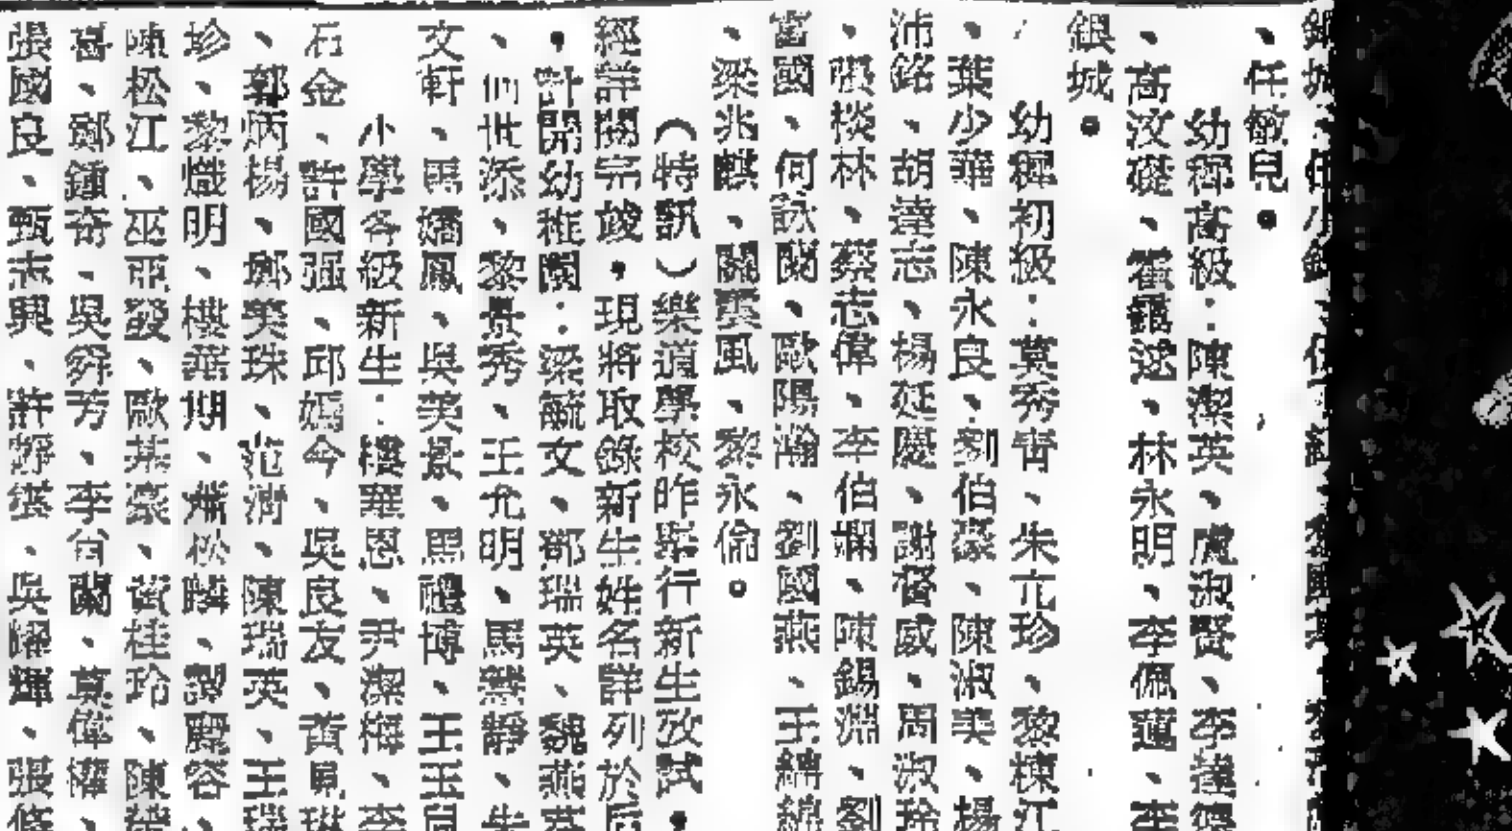 、任敏兒。
幼稺高級：陳潔英、盧淑賢、李
、高汶礎、霍 、林永明、李佩蓮、李
銀城。
幼稺初級：莫秀青、朱亢珍、黎棟江
、葉少華、陳永良、劉伯豪、陳淑美、楊
沛銘、胡達志、楊延慶、謝督威、周淑玲
、張棪林、蔡志偉、李伯嫻、陳錫淵、劉
富國、何詠閑、歐陽瀚、劉國燕、王綿綿
、梁兆麒、關雲風、黎永倫。
（特訊）樂道學校昨舉行新生攷試，
經詳閱完竣，現將取錄新生姓名詳列於后
，計開幼稚園：梁毓文、鄧瑞英、魏燕英
、 世添、黎景秀、王允明、馬 靜、朱
文軒、馬嬌鳳、吳英景、馬禮博、王玉貞
小學各級新生：樓華恩、尹潔梅、李
石金、許國强、邱嫣今、吳良友、黃鳳琳
、郭炳楊、鄭美珠、范 、陳瑞英、王瑞
珍、黎熾明、樓華期、 松麟、譚寶容、
陳松江、巫亞發、歐基豪、黃桂玲、陳
喜、鄭鍾奇、吳舜芳、李 蘭、莫偉權、
張國良、甄志興、許 、吳耀輝、張